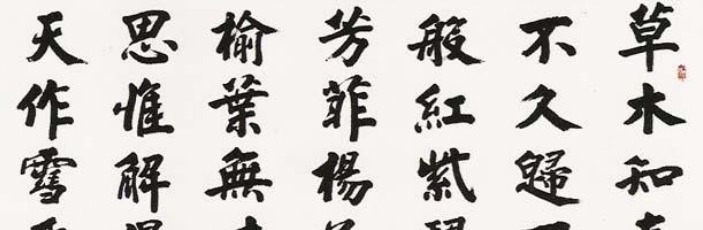 草木知
不久歸
般紅紫
芳菲楊
榆葉無
思惟解
天作雪